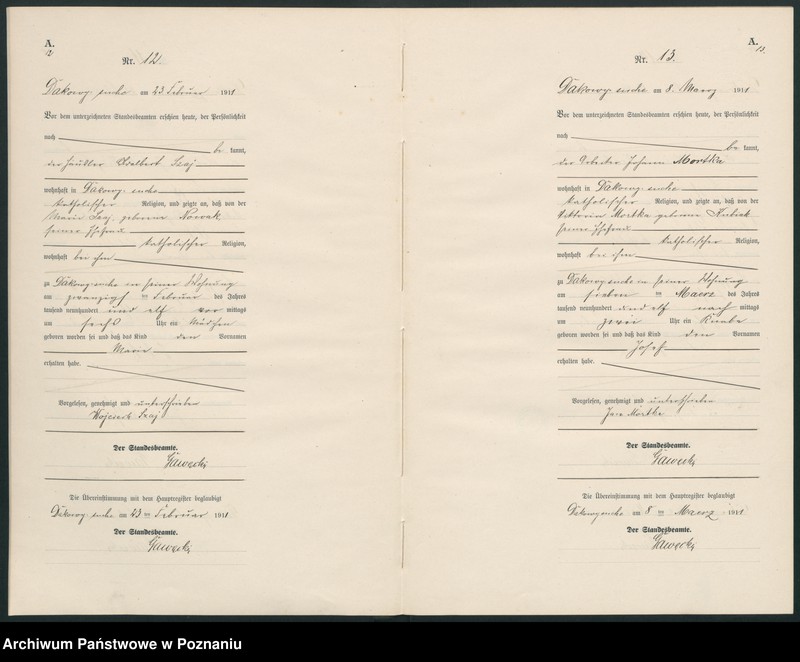 A.
12
Nr. 12.
Dakowy suche am 23 Februar 1911
Vor dem unterzeichneten Standesbeamten erschien heute, der Persönlichkeit
nach
be kannt,
der Häusler Adalbert
wohnhaft in Dakowy suche
katholischer Religion, und zeigte an, daß von der
Marie geborene Nowak
seiner Ehefrau
katholischer Religion,
wohnhaft bei ihm
zu Dakowy suche in seiner Wohnung
am zwanzigst en Februar des Jahres
tausend neunhundert und elf vor mittags
um sechs Uhr ein Mädchen
geboren worden sei und daß das Kind den Vornamen
Marie
erhalten habe.
Vorgelesen, genehmigt und unterschrieben
Der Standesbeamte.
Gawecki
Die Übereinstimmung mit dem Hauptregister beglaubigt
Dakowy suche am 23 ten Februar 1911
Der Standesbeamte.
Gawecki
A.
13.
Nr. 13.
Dakowy suche am 8. Maerz 1911
Vor dem unterzeichneten Standesbeamten erschien heute, der Persönlichkeit
nach
be kannt,
der Arbeiter Johann Mortka
wohnhaft in Dakowy suche
katholischer Religion, und zeigte an, daß von der
Viktoria Mortka geborene Kubiak
seiner Ehefrau
katholischer Religion,
wohnhaft bei ihm
zu Dakowy suche in seiner Wohnung
am sieben ten Maerz des Jahres
tausend neunhundert und elf nach mittags
um zwei Uhr ein Knabe
geboren worden sei und daß das Kind den Vornamen
Josef
erhalten habe.
Vorgelesen, genehmigt und unterschrieben
Jan Mortka
Der Standesbeamte.
Gawecki
Die Übereinstimmung mit dem Hauptregister beglaubigt
Dakowy suche am 8 ten Maerz 1911
Der Standesbeamte.
Gawecki
Archiwum Państwowe w Poznaniu